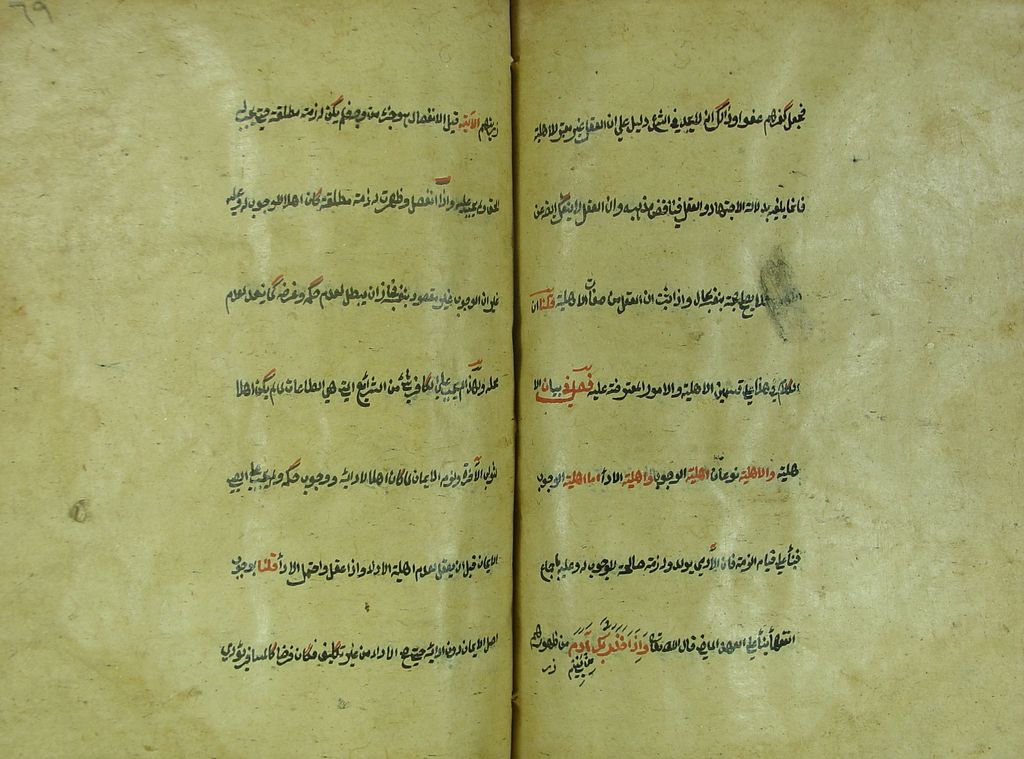 فجعل كفرهم عفوا وذلك انه لا يجد في الشرع دليل على ان العقل غير معتبر للاهلية
فانما يلغيه بدلالة الاجتهاد والعقل فيناقض مذهبه وان العقل لا ينفك الهوى عن
فلا يصلح حجة بنفسه بحال واذا ثبت ان العقل من صفات الاهلية قلنا ان
الكلام في هذا على قسمين الاهلية والامور المعترضة عليه فصل في بيان الا
هلية والاهلية نوعان اهلية الوجوب واهلية الاداء اما اهلية الوجوب
فبناء على قيام الذمة فان الآدمي يولد وله ذمة صالحة للوجوب له وعليه باجماع
الفقهاء بناء على العهد الماضي قال الله تعالى واذ اخذ ربك من بني آدم من ظهورهم
ذريتهم الآية قبل الانفصال هو جزء من وجه فلم يكن له ذمة مطلقة حتى يجب له
الحق ولم يجب عليه واذا انفصل وظهرت له ذمة مطلقة كان اهلا للوجوب له وعليه
غير ان الوجوب غير مقصود بنفسه فجاز ان يبطل لعدم حكمه وغرضه كما ينعدم لعدم
محله ولهذا لم يجب على الكافر شيء من الشرائع التي هي الطاعات لما لم يكن اهلا
لثواب الآخرة ولزمه الايمان لما كان اهلا لادائه ووجوب حكمه ولم يجب على الصبي
الايمان قبل ان يعقل لعدم اهلية الاداء واذا عقل واحتمل الاداء قلنا بوجوب
اصل الايمان دون ادائه حتى صح الاداء من غير تكليف فكان فرضا كالمسافر يؤدي